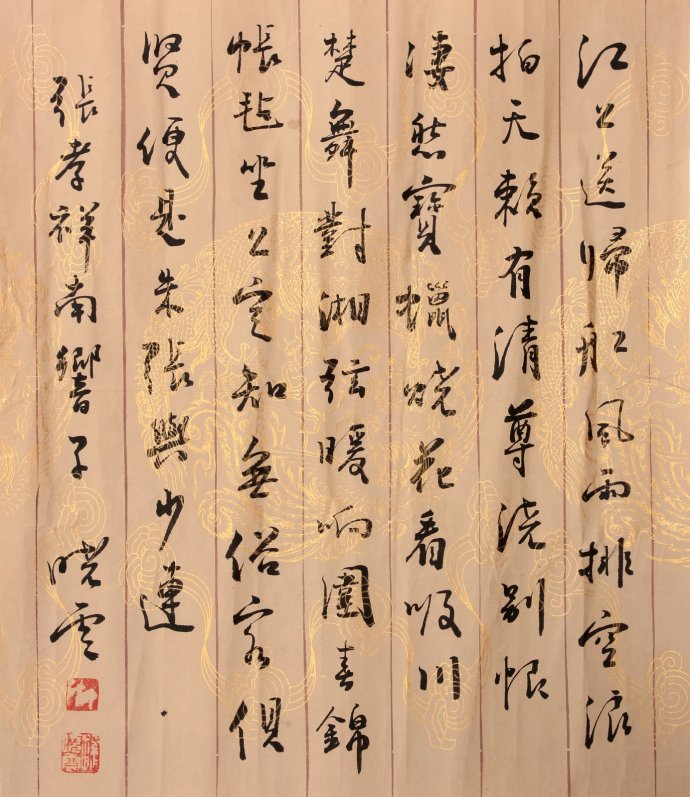 江上送歸船風雨排空浪
拍天賴有清尊澆別恨
淒然寶蠟燒花看吸川
楚舞對湘弦暖响圍春錦
帳氈坐上定知無俗客俱
賢便是朱張與少連
張孝祥南鄉子 曉雲